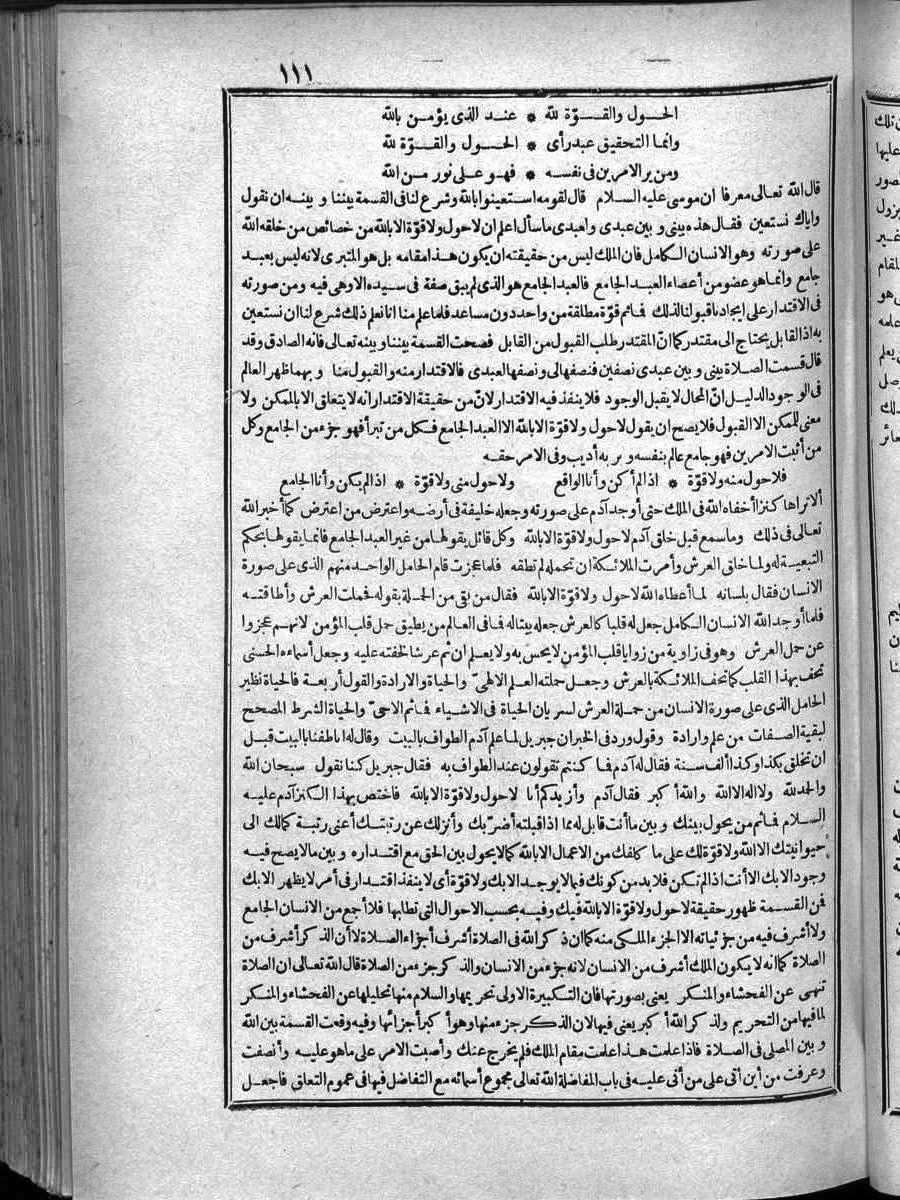 ١١١
الحول والقوّة لله * عند الذى يؤمن بالله
وانما التحقيق عبد رأى * الحول والقوّة لله
ومن ير الامرين فى نفسه * فهو على نور من الله
قال الله تعالى معرفا ان موسى عليه السلام قال لقومه استعينوا بالله وشرع لنا فى القسمة بيننا وبينه ان نقول
واياك نستعين فقال هذه بينى وبين عبدى ولعبدى ما سأل اعلم ان لاحول ولاقوّة الا بالله من خصائص من خلقه الله
على صورته وهو الانسان الكامل فان الملك ليس من حقيقته ان يكون هذا مقامه بل هو المتبرى لانه ليس بعبد
جامع وانما هو عضو من أعضاء العبد الجامع فالعبد الجامع هو الذى لم يبق صفة فى سيده الا وهى فيه ومن صورته
فى الاقتدار على ايجادنا قبولنا لذلك فما ثم قوّة مطلقة من واحد دون مساعد فلما علم منا انا نعلم ذلك شرع لنا ان نستعين
به اذ القابل يحتاج الى مقتدر كما انّ المقتدر طلب القبول من القابل فصحت القسمة بيننا وبينه تعالى فانه الصادق وقد
قال قسمت الصلاة بينى وبين عبدى نصفين فنصفها لى ونصفها لعبدى فالاقتدار منه والقبول منا وبهما ظهر العالم
فى الوجود الدليل انّ المحال لا يقبل الوجود فلا ينفذ فيه الاقتدار لانّ من حقيقة الاقتدار انه لا يتعلق الا بالممكن ولا
معنى للممكن الا القبول فلا يصح ان يقول لاحول ولاقوّة الا بالله الا العبد الجامع فكل من تبرأ فهو جزء من الجامع وكل
من أثبت الامرين فهو جامع عالم بنفسه وبربه أديب وفى الامر حقه
فلا حول منه ولا قوّة * اذا لم أكن وأنا الواقع ولا حول منى ولا قوّة * اذا لم يكن وأنا الجامع
ألا تراها كنزا أخفاه الله فى الملك حتى أوجد آدم على صورته وجعله خليفة فى أرضه واعترض من اعترض كما أخبر الله
تعالى فى ذلك وما سمع قبل خلق آدم لاحول ولاقوّة الا بالله وكل قائل يقولها من غير العبد الجامع فانما يقولها بحكم
التبعية له ولما خلق العرش وأمرت الملائكة ان تحمله لم تطقه فلما عجزت قام الحامل الواحد منهم الذى على صورة
الانسان فقال بلسانه لما أعطاه الله لاحول ولاقوّة الا بالله فقال من بقى من الحملة بقوله فحملت العرش وأطاقته
فلما أوجد الله الانسان الكامل جعل له قلبا كالعرش جعله بيتا له فما فى العالم من يطيق حمل قلب المؤمن لانهم عجزوا
عن حمل العرش وهو فى زاوية من زوايا قلب المؤمن لا يحس به ولا يعلم ان ثم عرشا لخفته عليه وجعل أسماءه الحسنى
تحف بهذا القلب كما تحف الملائكة بالعرش وجعل حملته العلم الالهىّ والحياة والارادة والقول أربعة فالحياة نظير
الحامل الذى على صورة الانسان من حملة العرش لسريان الحياة فى الاشياء فما ثم الا حىّ والحياة الشرط المصحح
لبقية الصفات من علم وارادة وقول ورد فى الخبر ان جبريل لما علم آدم الطواف بالبيت وقال له انا طفنا بالبيت قبل
ان تخلق بكذا وكذا ألف سنة فقال له آدم فما كنتم تقولون عند الطواف به فقال جبريل كنا نقول سبحان الله
والحمد لله ولا اله الا الله والله أكبر فقال آدم وأزيدكم أنا لاحول ولاقوّة الا بالله فاختص بهذا الكنز آدم عليه
السلام فما ثم من يحول بينك وبين ما أنت قابل له مما اذا قبلته أضرّ بك وأنزلك عن رتبتك أعنى رتبة كمالك الى
حيوانيتك الا الله ولا قوّة لك على ما كلفك من الاعمال الا بالله كما لا يحول بين الحق مع اقتداره وبين ما لا يصح فيه
وجود الا بك الا أنت اذا لم تكن فلا بد من كونك فيما لا يوجد الا بك ولا قوّة أى لا ينفذ اقتدار فى أمر لا يظهر الا بك
فمن القسمة ظهور حقيقة لاحول ولاقوّة الا بالله فيك وفيه بحسب الاحوال التى تطلبها فلا أجمع من الانسان الجامع
ولا أشرف فيه من جزئياته الا الجزء الملكى منه كما ان ذكر الله فى الصلاة أشرف أجزاء الصلاة لا أن الذكر أشرف من
الصلاة كما انه لا يكون الملك أشرف من الانسان لانه جزء من الانسان والذكر جزء من الصلاة قال الله تعالى ان الصلاة
تنهى عن الفحشاء والمنكر يعنى بصورتها فان التكبيرة الاولى تحريمها والسلام منها تحليلها عن الفحشاء والمنكر
لما فيها من التحريم ولذكر الله أكبر يعنى فيها لان الذكر جزء منها وهو أكبر أجزائها وفيه وقعت القسمة بين الله
وبين المصلى فى الصلاة فاذا علمت هذا علمت مقام الملك فلم يخرج عنك وأصبت الامر على ما هو عليه وأنصفت
وعرفت من أين أتى على من أتى عليه فى باب المفاضلة الله تعالى مجموع أسمائه مع التفاضل فيها فى عموم التعلق فاجعل